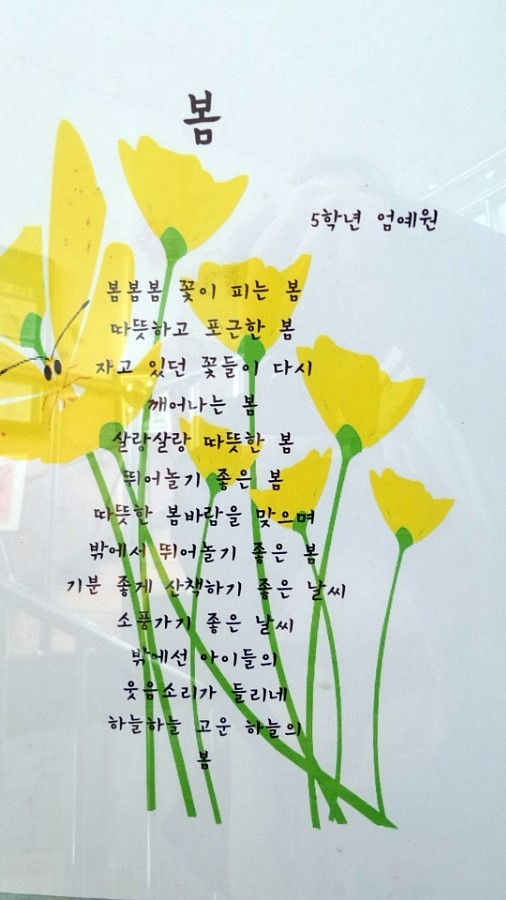 봄
5학년 엄예원
봄봄봄 꽃이 피는 봄
따뜻하고 포근한 봄
자고 있던 꽃들이 다시
깨어나는 봄
살랑살랑 따뜻한 봄
뛰어놀기 좋은 봄
따뜻한 봄바람을 맞으며
밖에서 뛰어놀기 좋은 봄
기분 좋게 산책하기 좋은 날씨
소풍가기 좋은 날씨
밖에선 아이들의
웃음소리가 들리네
하늘하늘 고운 하늘의
봄